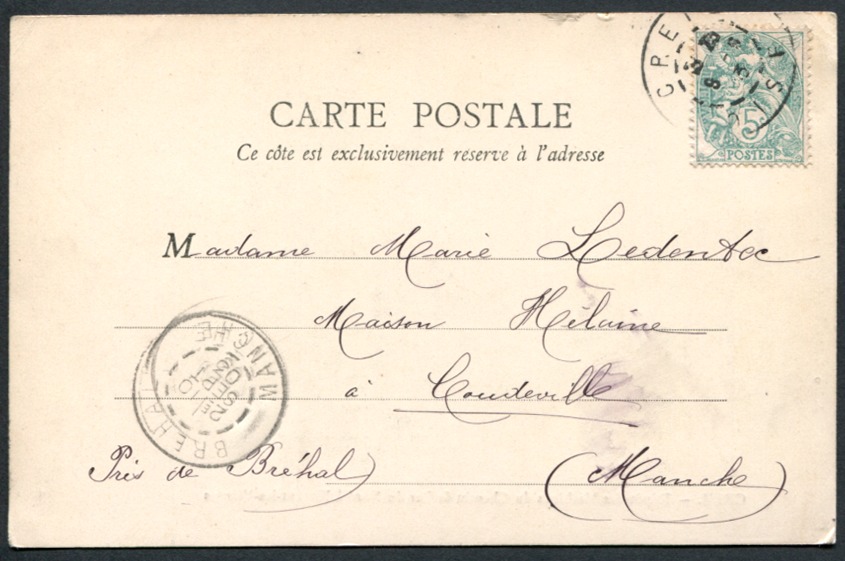 CARTE POSTALE
Ce côte est exclusivement réservé à l'adresse
5
POSTES
CRE
Madame Marie Ledentec
Maison Hélaine
à Coudeville
Près de Bréhal (Manche)
BREHAL
MANCHE